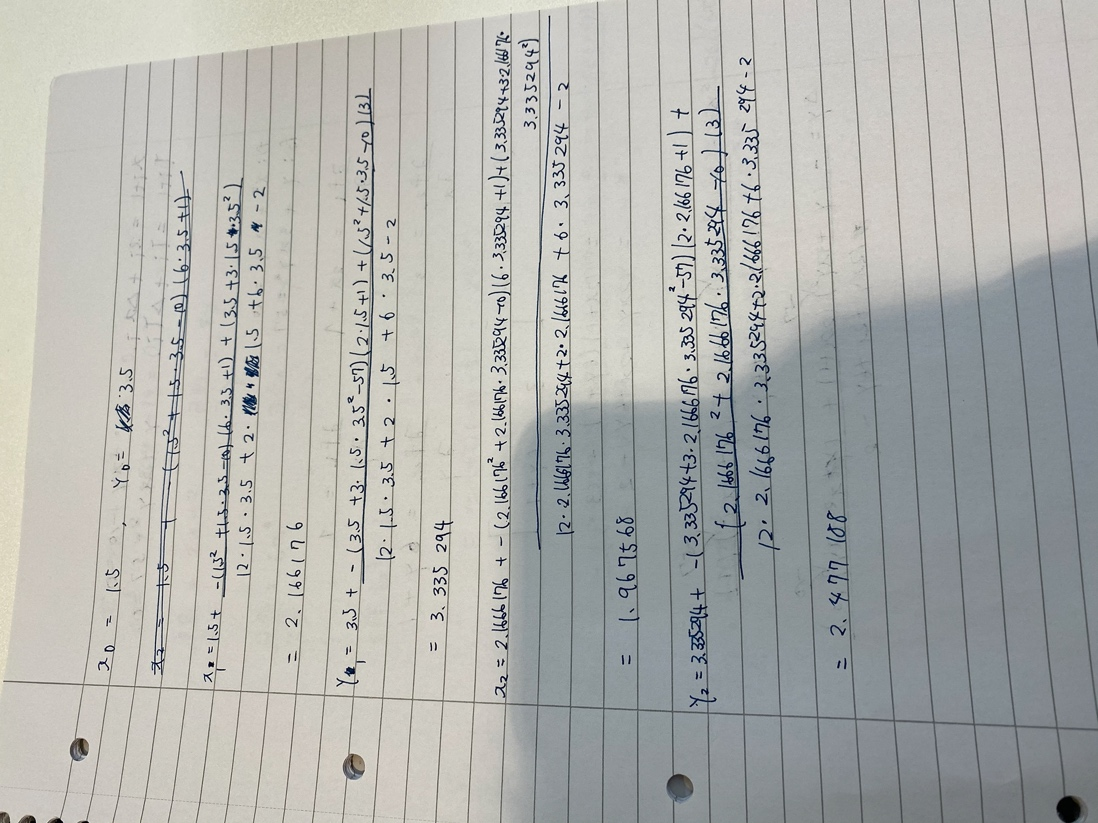 x₀ = 1.5 , Y₀ = 3.5
x₂ = 1.5 + -(1.5² + 1.5 · 3.5 - 10)(6 · 3.5 + 1)
x₁ = 1.5 + -(1.5² + 1.5 · 3.5 - 10)(6 · 3.5 + 1) + (3.5 + 3 · 1.5 · 3.5²)
12 · 1.5 · 3.5 + 2 · 1.5 + 6 · 3.5 - 2
= 2.166176
Y₁ = 3.5 + -(3.5 + 3 · 1.5 · 3.5² - 57)(2 · 1.5 + 1) + (1.5² + 1.5 · 3.5 - 10)(3)
12 · 1.5 · 3.5 + 2 · 1.5 + 6 · 3.5 - 2
= 3.335294
x₂ = 2.1666176 + -(2.166176² + 2.166176 · 3.335294 - 10)(6 · 3.335294 + 1) + (3.335294 + 3 2.166176 ·
3.335294²)
12 · 2.166176 · 3.335294 + 2 · 2.1666176 + 6 · 3.335294 - 2
= 1.967568
Y₂ = 3.335294 + -(3.335294 + 3 · 2.1666176 · 3.335294² - 57)(2 · 2.166176 + 1) +
(2.1666176² + 2.1666176 · 3.335294 - 10)(3)
12 · 2.1666176 · 3.335294 + 2 · 2.1666176 + 6 · 3.335294 - 2
= 2.477108